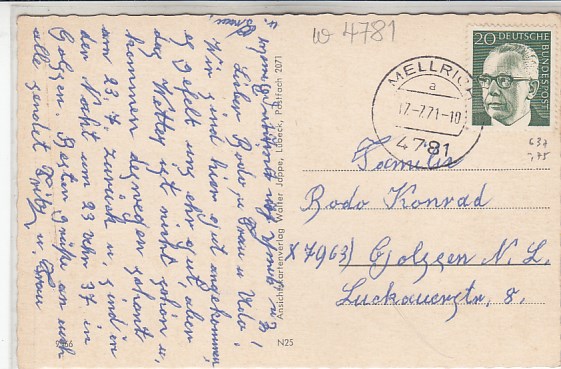 w 4781
20 DEUTSCHE BUNDESPOST
MELLRICH
a
17.-7.71-10
4781
637
-,75
Familie
Bodo Konrad
X 7963) Golssen N. L.
Luckauerstr. 8.
Ansichtkartenverlag Walter Jappe, Lübeck, Postfach 2071
N25
Lieber Bodo, u Frau u Udo!
Wir sind hier gut angekommen
es gefelt uns sehr gut, aber
das Wetter ist nicht schön u,
kommen deswegen schont
am 23.7. zurück u, sind in
der Nacht um 23 Uhr 37 in
Golssen. Besten Grüße an euch
alle sendet Fritz u. Frau